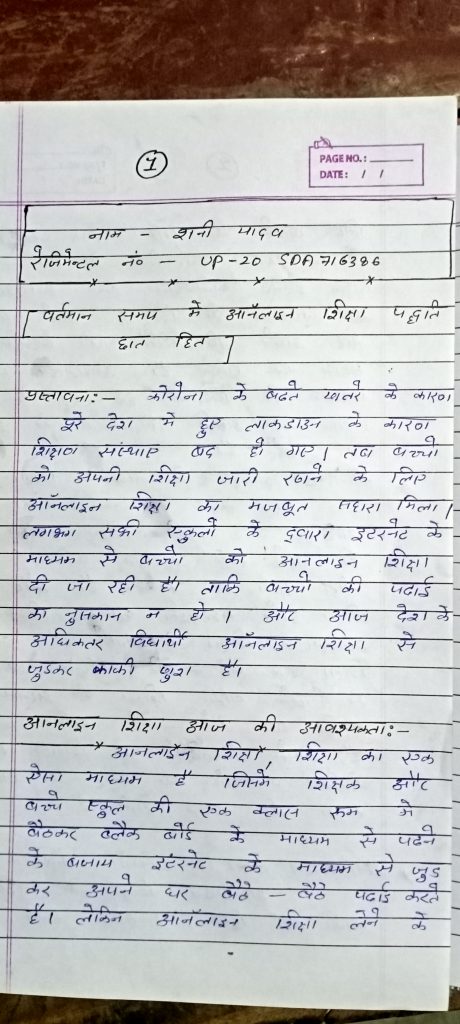 1
PAGE NO.:
DATE: / /
नाम - शनी यादव
रेजिमेन्टल नं० - UP-20 SDA 716386
वर्तमान समय मे ऑनलाइन शिक्षा पद्धति
छात हित
प्रस्तावना:- कोरोना के बढते खतरे के कारण
पूरे देश मे हुए लाकडाउन के कारण
शिक्षण संस्थाए बंद हो गए। तब बच्चो
को अपनी शिक्षा जारी रखने के लिए
ऑनलाइन शिक्षा का मजबूत सहारा मिला।
लगभग सभी स्कुलो के दुवारा इंटरनेट के
माध्यम से बच्चो को आनलाइन शिक्षा
दी जा रही है। ताकि बच्चो की पढाई
का नुसकान न हो। और आज देश के
अधिकतर विद्यार्थी ऑनलाइन शिक्षा से
जुडकर काफी खुश है।
आनलाइन शिक्षा आज की आवश्यकता:-
आनलाईन शिक्षा, शिक्षा का एक
ऐसा माध्यम है जिसमे शिक्षक और
बच्चे स्कुल की एक क्लास रूम मे
बैठकर ब्लैक बोर्ड के माध्यम से पढने
के बजाय इंटरनेट के माध्यम से जुड
कर अपने घर बैठे - बैठे पढाई करते
है। लेकिन ऑनलाइन शिक्षा लेने के